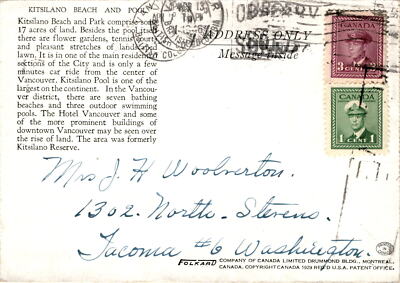 KITSILANO BEACH AND POOL
Kitsilano Beach and Park comprise some
17 acres of land. Besides the pool itself
there are flower gardens, tennis courts
and pleasant stretches of landscaped
lawn. It is in one of the main residential
sections of the City and is only a few
minutes car ride from the center of
Vancouver. Kitsilano Pool is one of the
largest on the continent. In the Vancou-
ver district, there are seven bathing
beaches and three outdoor swimming
pools. The Hotel Vancouver and some
of the more prominent buildings of
downtown Vancouver may be seen over
the rise of land. The area was formerly
Kitsilano Reserve.
ADDRESS ONLY
Message Inside
CANADA
3 CENTS 3
CANADA
1 CENT 1
Mrs J. H Woolverton.
1302. North. Stevens.
Tacoma #6 Washington.
FOLKARD COMPANY OF CANADA LIMITED DRUMMOND BLDG., MONTREAL,
CANADA. COPYRIGHT CANADA 1929 REG'D U.S.A. PATENT OFFICE.